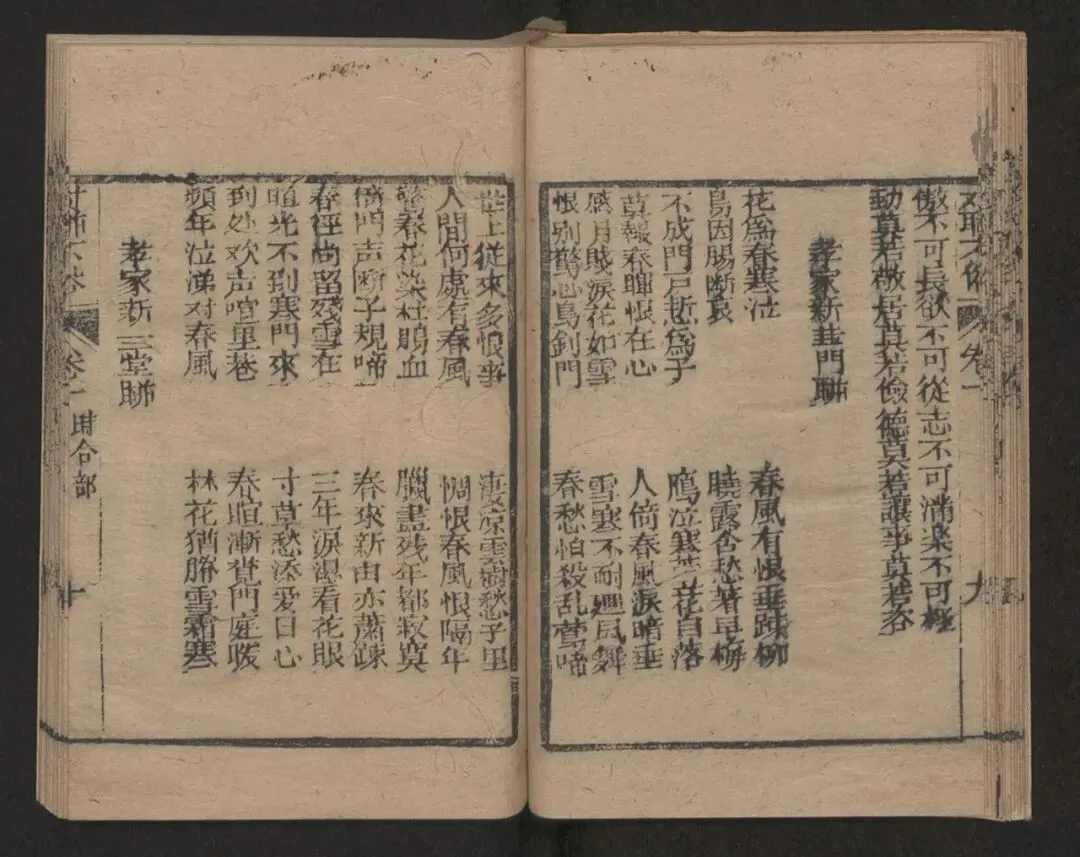 卷一
九
傲不可長欲不可從志不可滿楽不可極
動莫若敬居莫若儉德莫若讓事莫若咨
孝家新門聯
花爲春寒泣
春風有恨垂踈柳
鳥因腸断哀
曉露含愁着早梅
不成門戶慙爲子
鴈泣寒花自落
莫報春暉恨在心
人倚春風淚暗垂
感月賤淚花如雪
雪寒不耐廻風舞
恨别驚心鳥到門
春愁怕殺乱莺啼
世上從來多恨事
凄凉雲樹愁千里
人間何處有春風
惆恨春風恨隔年
驚春花染杜鵑血
臘盡残年都寂寞
傍門声断子規啼
春來新由亦蕭疎
春徑尚留殘雪在
三年淚湿看花眼
暄光不到寒門來
寸草愁添愛日心
到处欢声喧里巷
春暄漸覺門庭暖
頻年泣涕对春風
林花猶帶雪霜寒
孝家新三堂聯
卷一
時合部
十